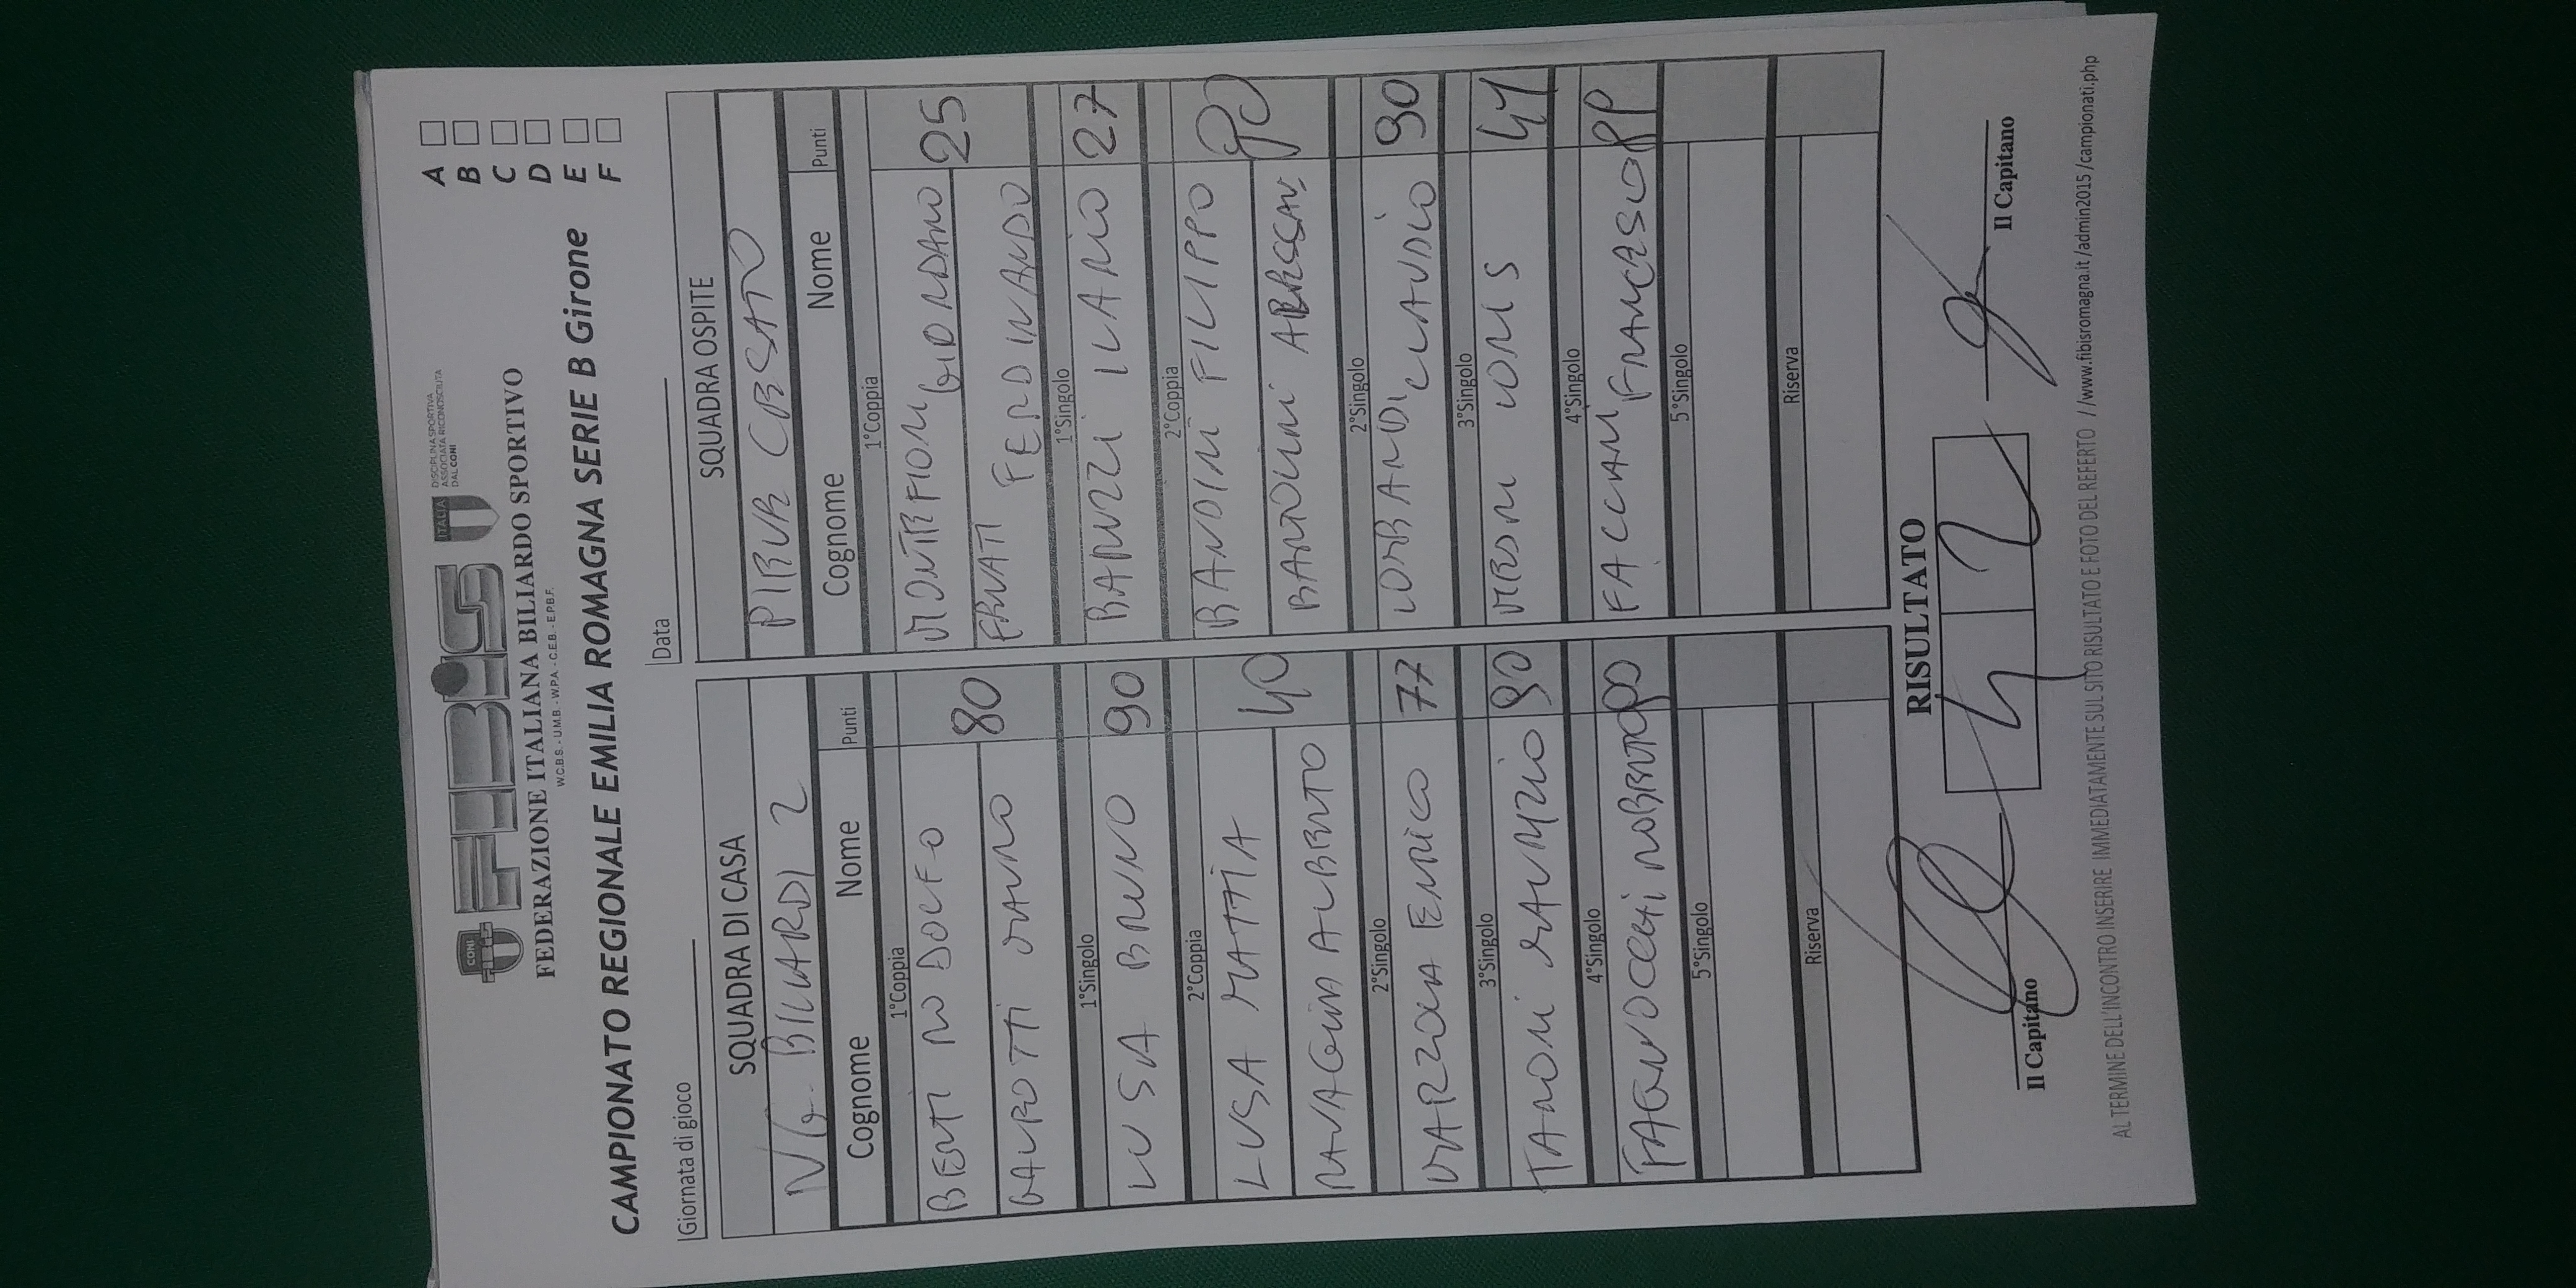 CONI
FIBiS
ITALIA
DISCIPLINA SPORTIVA
ASSOCIATA RICONOSCIUTA
DAL CONI
FEDERAZIONE ITALIANA BILIARDO SPORTIVO
W.C.B.S. - U.M.B. - W.P.A. - C.E.B. - E.P.B.F.
CAMPIONATO REGIONALE EMILIA ROMAGNA SERIE B Girone
A
B
C
D
E
F
Giornata di gioco
Data
SQUADRA DI CASA
N G. BILIARDI 2
Cognome Nome Punti
1°Coppia
BERTI RODOLFO 80
GALPOTTI MAURO
1°Singolo
LUSA BRUNO 90
2°Coppia
LUSA MATTIA 40
RAVAGLIA ALBERTO
2°Singolo
ENRICO 77
3°Singolo
TARONI MAURIZIO 90
4°Singolo
PAGNOCCHI ROBERTO 90
5°Singolo
Riserva
SQUADRA OSPITE
CESATO
Cognome Nome Punti
1°Coppia
MONTEFIORI GIORDANO 25
FERDINANDO
1°Singolo
BANZI ILARIO 27
2°Coppia
BANDINI FILIPPO 80
BARTOLINI
2°Singolo
LOMBARDI CLAUDIO 90
3°Singolo
LORIS 41
4°Singolo
FACCIANI FRANCESCO
5°Singolo
Riserva
RISULTATO
4 2
Il Capitano
Il Capitano
AL TERMINE DELL'INCONTRO INSERIRE IMMEDIATAMENTE SUL SITO RISULTATO E FOTO DEL REFERTO //www.fibisromagna.it/admin2015/campionati.php